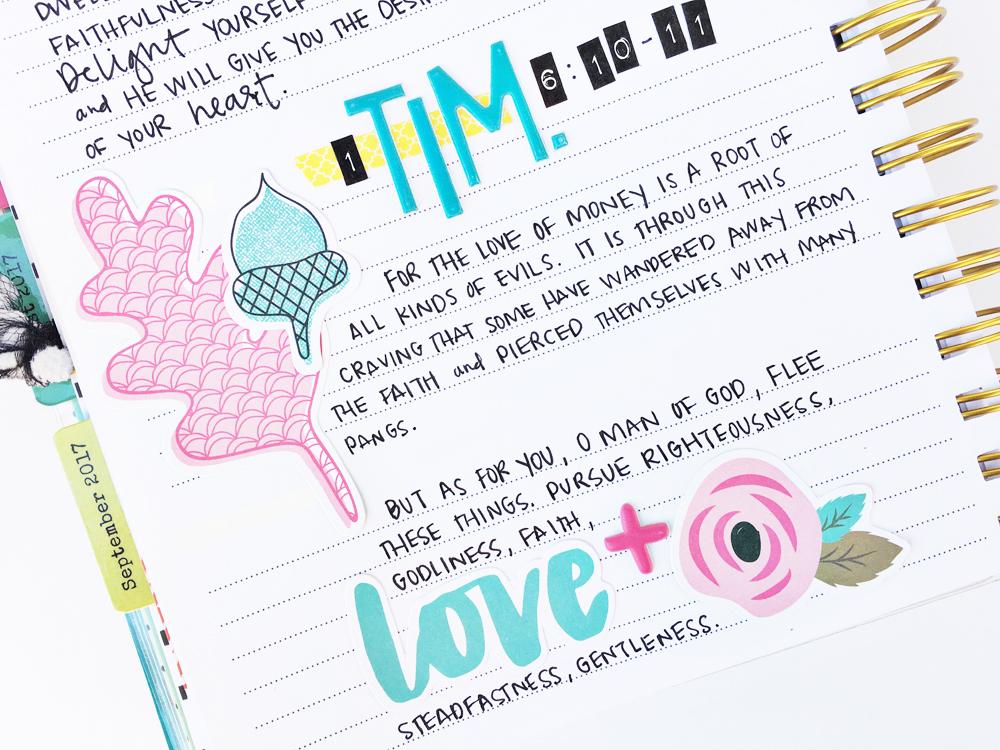 FAITHFULNESS
Delight YOURSELF
and HE WILL GIVE YOU THE DESIR
OF YOUR heart.
1 TIM. 6:10-11
FOR THE LOVE OF MONEY IS A ROOT OF
ALL KINDS OF EVILS. IT IS THROUGH THIS
CRAVING THAT SOME HAVE WANDERED AWAY FROM
THE FAITH and PIERCED THEMSELVES WITH MANY
PANGS.
BUT AS FOR YOU, O MAN OF GOD, FLEE
THESE THINGS. PURSUE RIGHTEOUSNESS,
GODLINESS, FAITH,
love +
STEADFASTNESS, GENTLENESS.
2017
September 2017